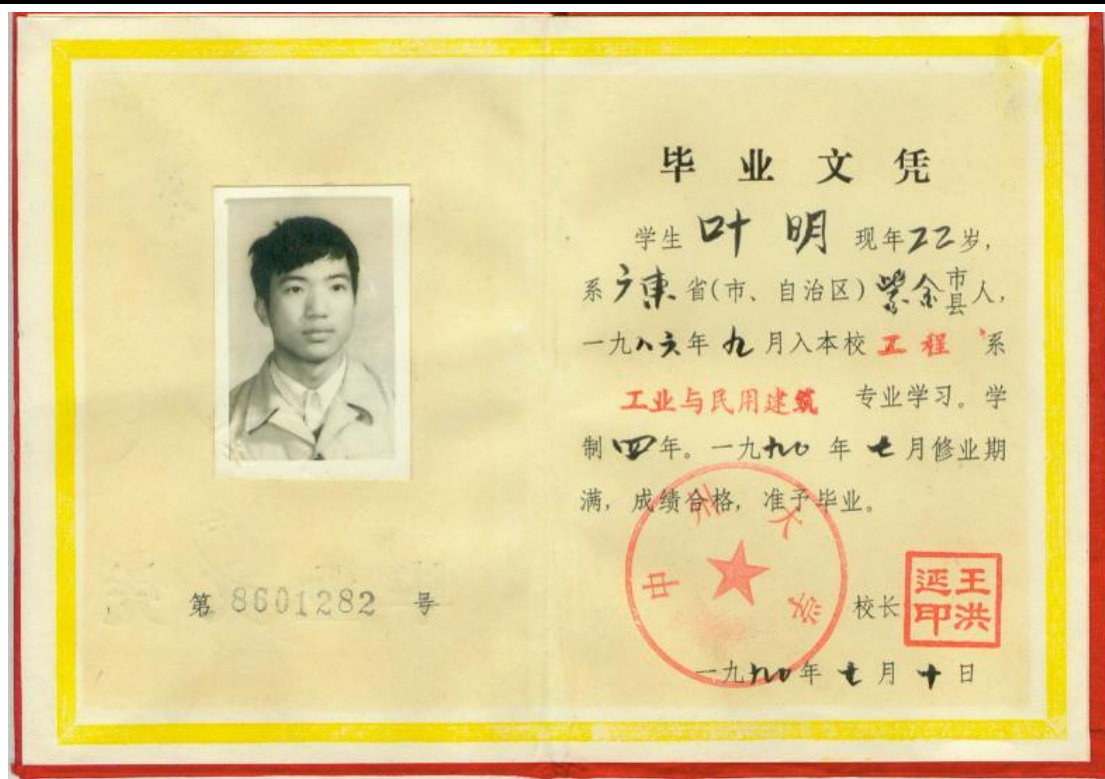 第 8601282 号
毕业文凭
学生 叶明 现年22岁,
系广東省(市、自治区)紫金市县人,
一九八六年九月入本校 工程 系
工业与民用建筑 专业学习。学
制四年。一九九〇年七月修业期
满,成绩合格,准予毕业。
中州大学
校长
王洪延印
一九九〇年七月十日